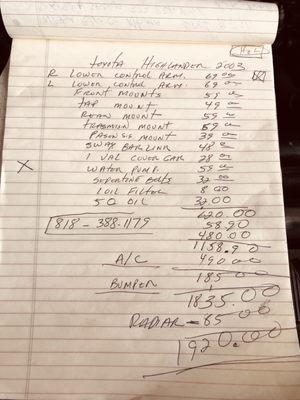 H&L
TOYOTA HIGHLANDER 2003
R LOWER CONTROL ARM. 69 00
L LOWER CONTROL ARM. 69 00
FRONT MOUNTS 59 00
TAP MOUNT 49 00
REAR MOUNT 59 00
TRASMION MOUNT 89 00
MOUNT 39 00
SWAY BAR LINK 48 00
1 VAL COVER GAK 28 00
X
WATER PUMP 59 00
SERPENTINE BELTS 32 00
1 OIL FILTER 8 00
5 Q OIL 32.00
620.00
818-388-1179
58.90
480.00
1158.90
A/C 490.00
BUMPER 185 00
1835.00
RADIAR - 85 00
1920.00